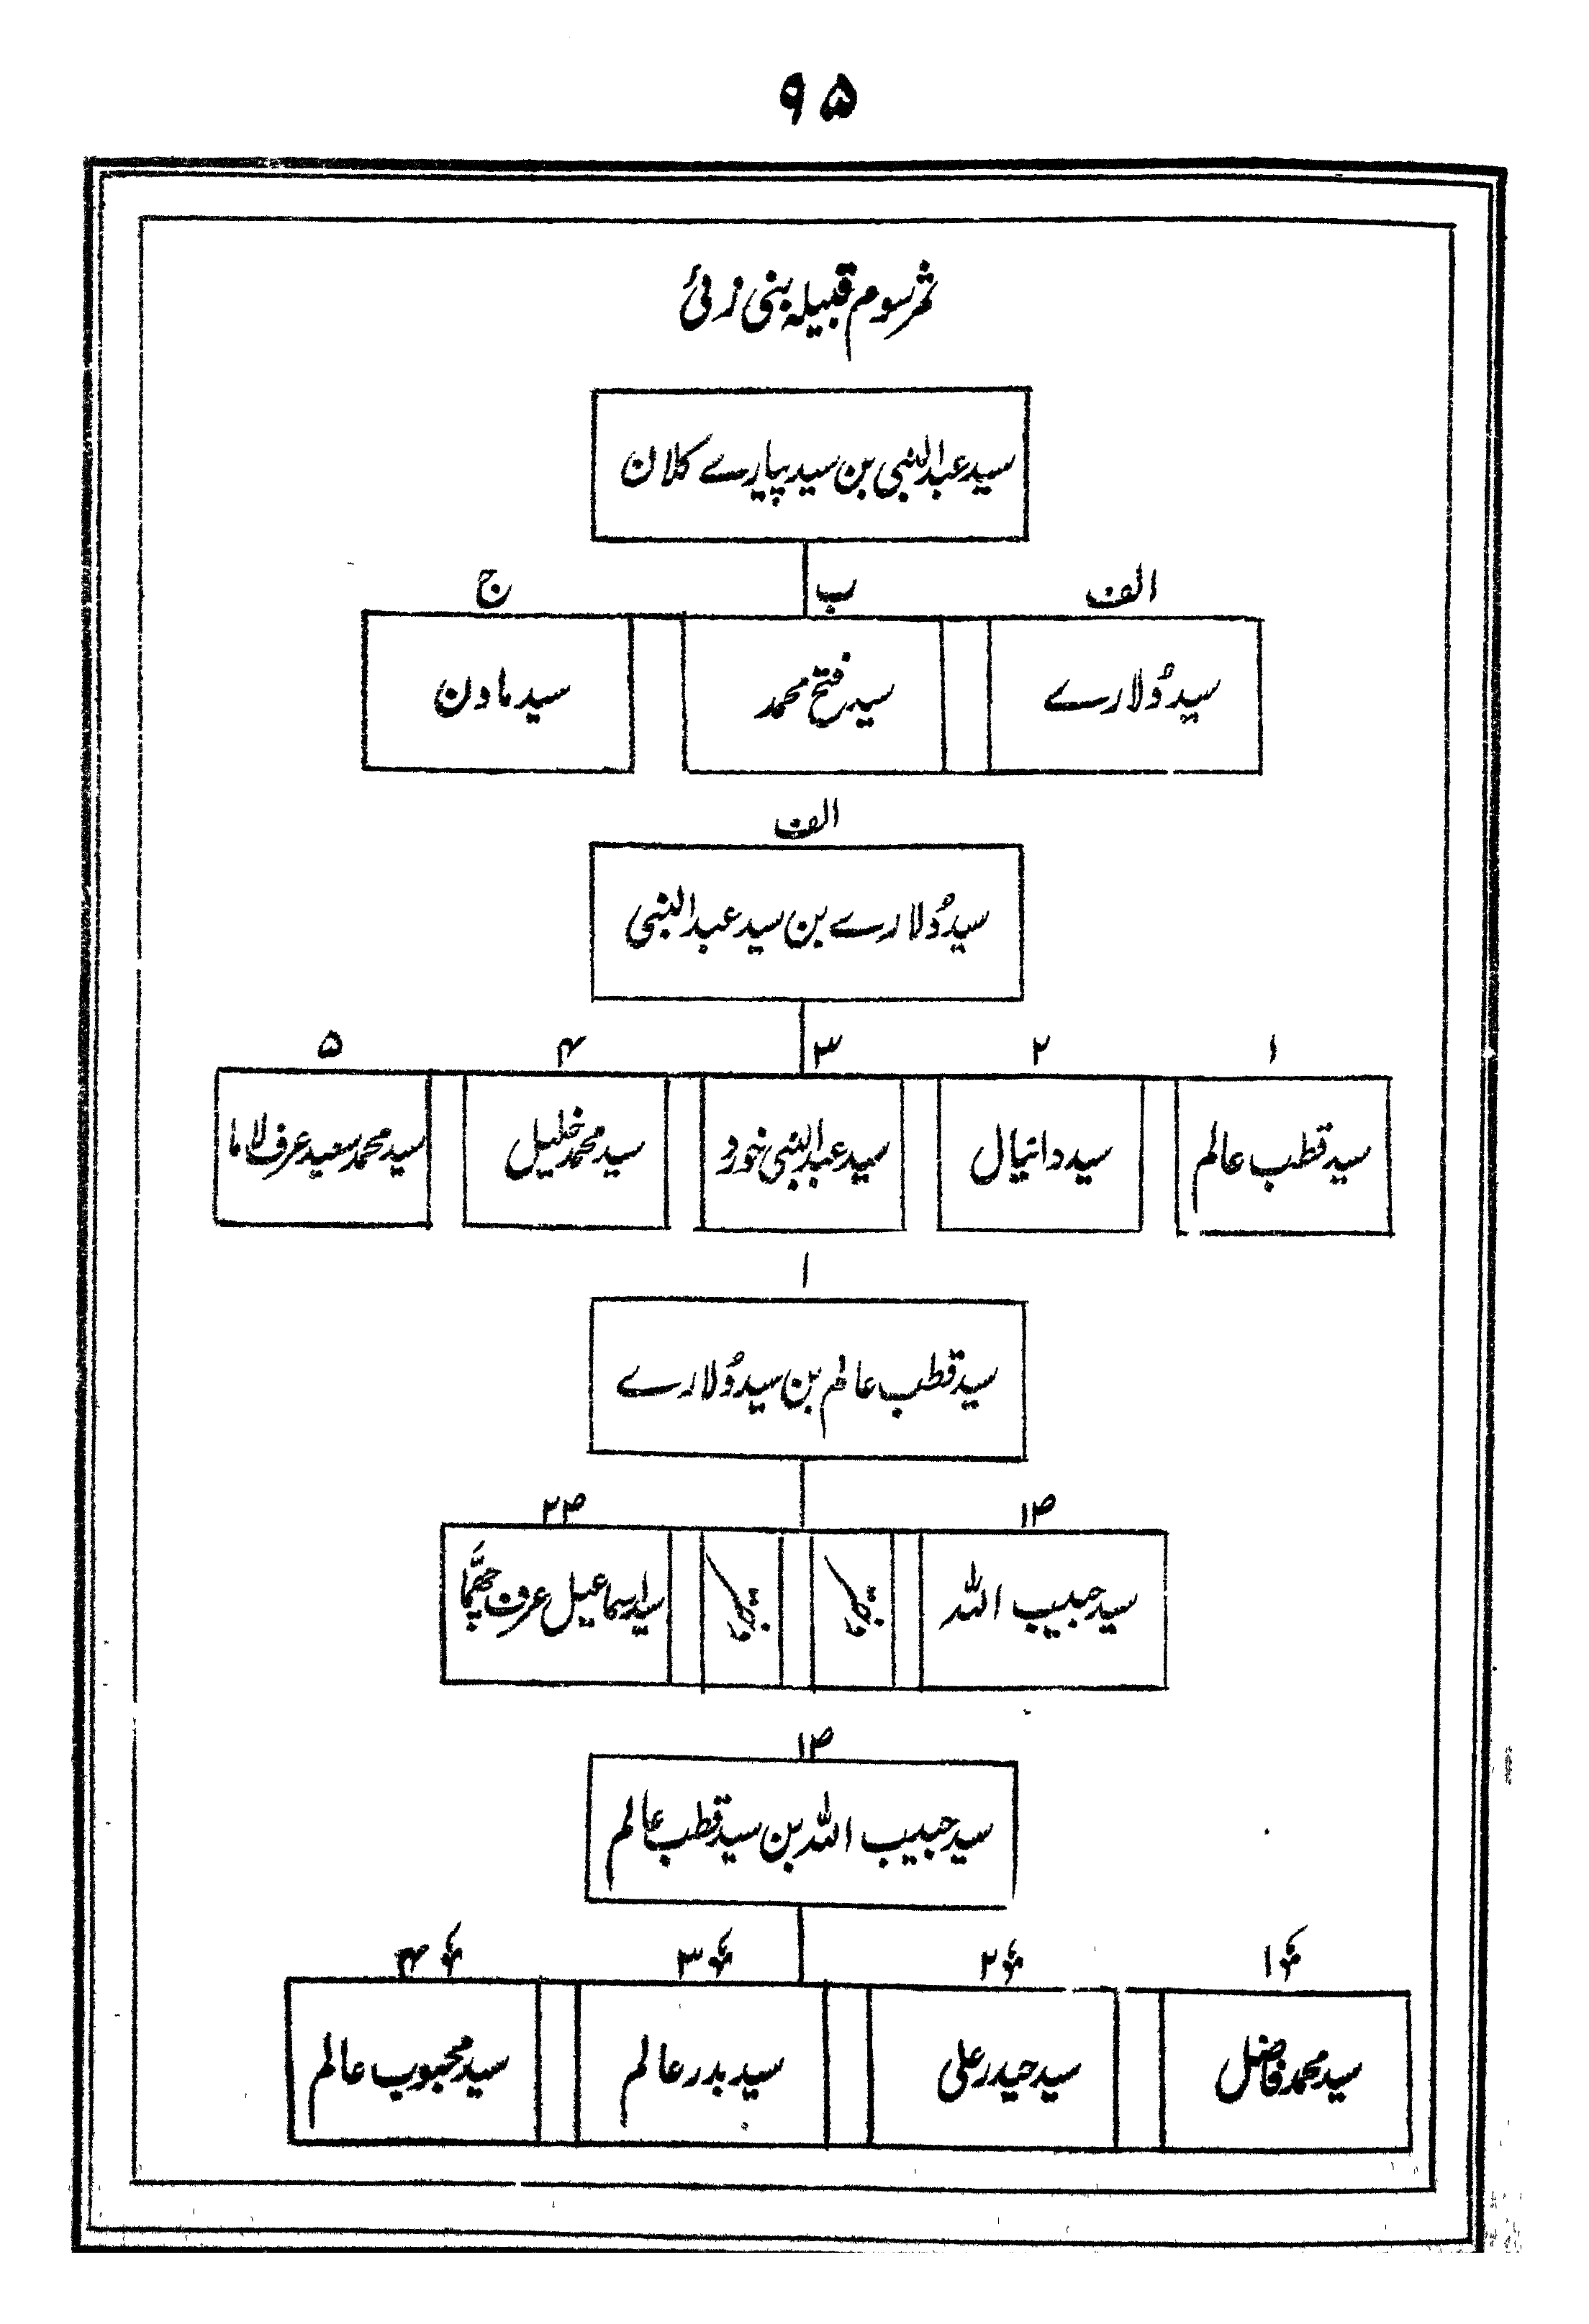 ۹۵
ثمر سوم قبیلہ بنی زئی
سید عبدالنبی بن سید پیارے کلان
الف ب ج
سید دُلارے سید فتح محمد سید مادن
الف
سید دُلارے بن سید عبدالنبی
۱ ۲ ۳ ۴ ۵
سید قطب عالم سید دانیال سید عبدالنبی خورد سید محمد خلیل سید محمد سعید عرف لاما
۱
سید قطب عالم بن سید دُلارے
ص۱ ص۲
سید حبیب اللہ سید اسماعیل عرف
ص۱
سید حبیب اللہ بن سید قطب عالم
۱ ۲ ۳ ۴
سید محمد فاضل سید حیدر علی سید بدر عالم سید محبوب عالم